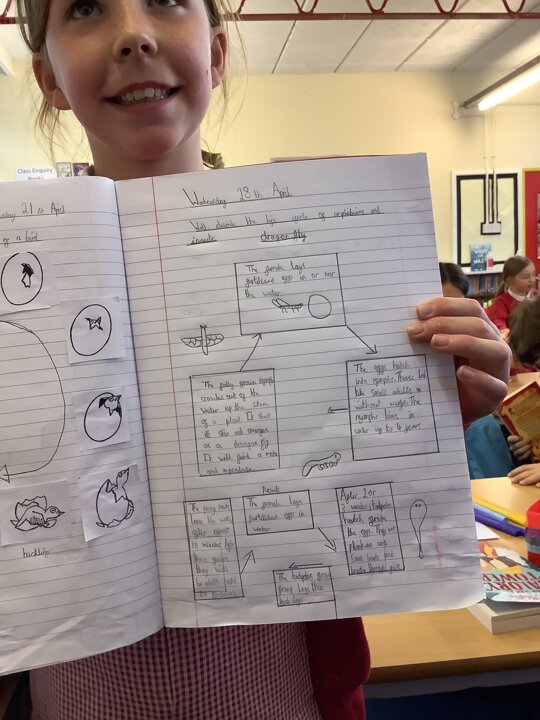 Class Enquiry
Books
21st April
of a bird
hatching
Wednesday 28th April
describe the life cycle of amphibians and
insects dragon fly
The female lays
fertilised eggs in or near
the water
The eggs hatch
into nymphs. These look
like small adults
without wings. The
nymphs lives in
water up to 4 years
The fully grown nymph
crawles out of the
water up the stem
of a plant. It sheds
its skin and
as a dragon fly
It will find a mate
and reproduce
Newt
The female lays
fertilised eggs in
water
After 2 or
3 weeks, tadpoles
hatch from
the eggs. They eat
plankton and
small and
breath through gills
The tadpoles grow
front legs then
back legs
The young newts
leave the water
after about
10 weeks. After
three years
they will
be adult